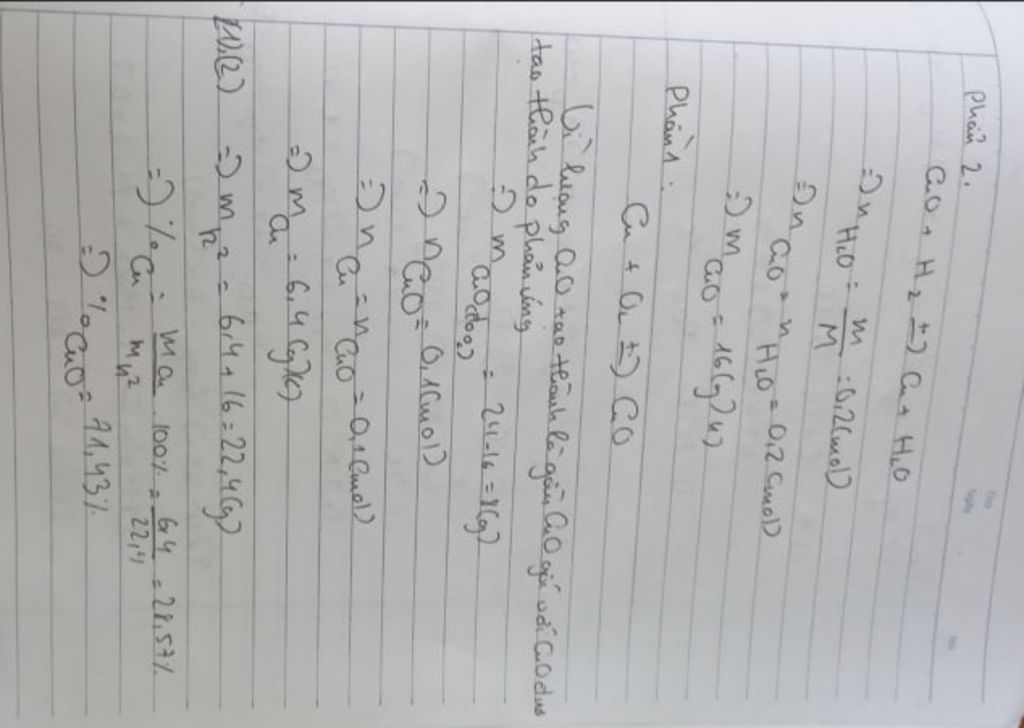 Phần 2.
CuO + H2 t° => Cu + H2O
=> n H2O = m/M = 0,2(mol)
=> n CuO = n H2O = 0,2(mol)
=> m CuO = 16(g) (1)
Phần 1:
Cu + O2 t° => CuO
Vì lượng CuO tạo thành là gồm CuO
tạo thành do phản ứng
=> m CuO (do O2) = 24-16 = 8(g)
=> n CuO = 0,1(mol)
=> n Cu = n CuO = 0,1(mol)
=> m Cu = 6,4(g)
(2) => m h2 = 6,4 + 16 = 22,4(g)
=> % Cu = m Cu / m h2 . 100% = 6,4/22,4 = 28,57%
=> % CuO = 71,43%